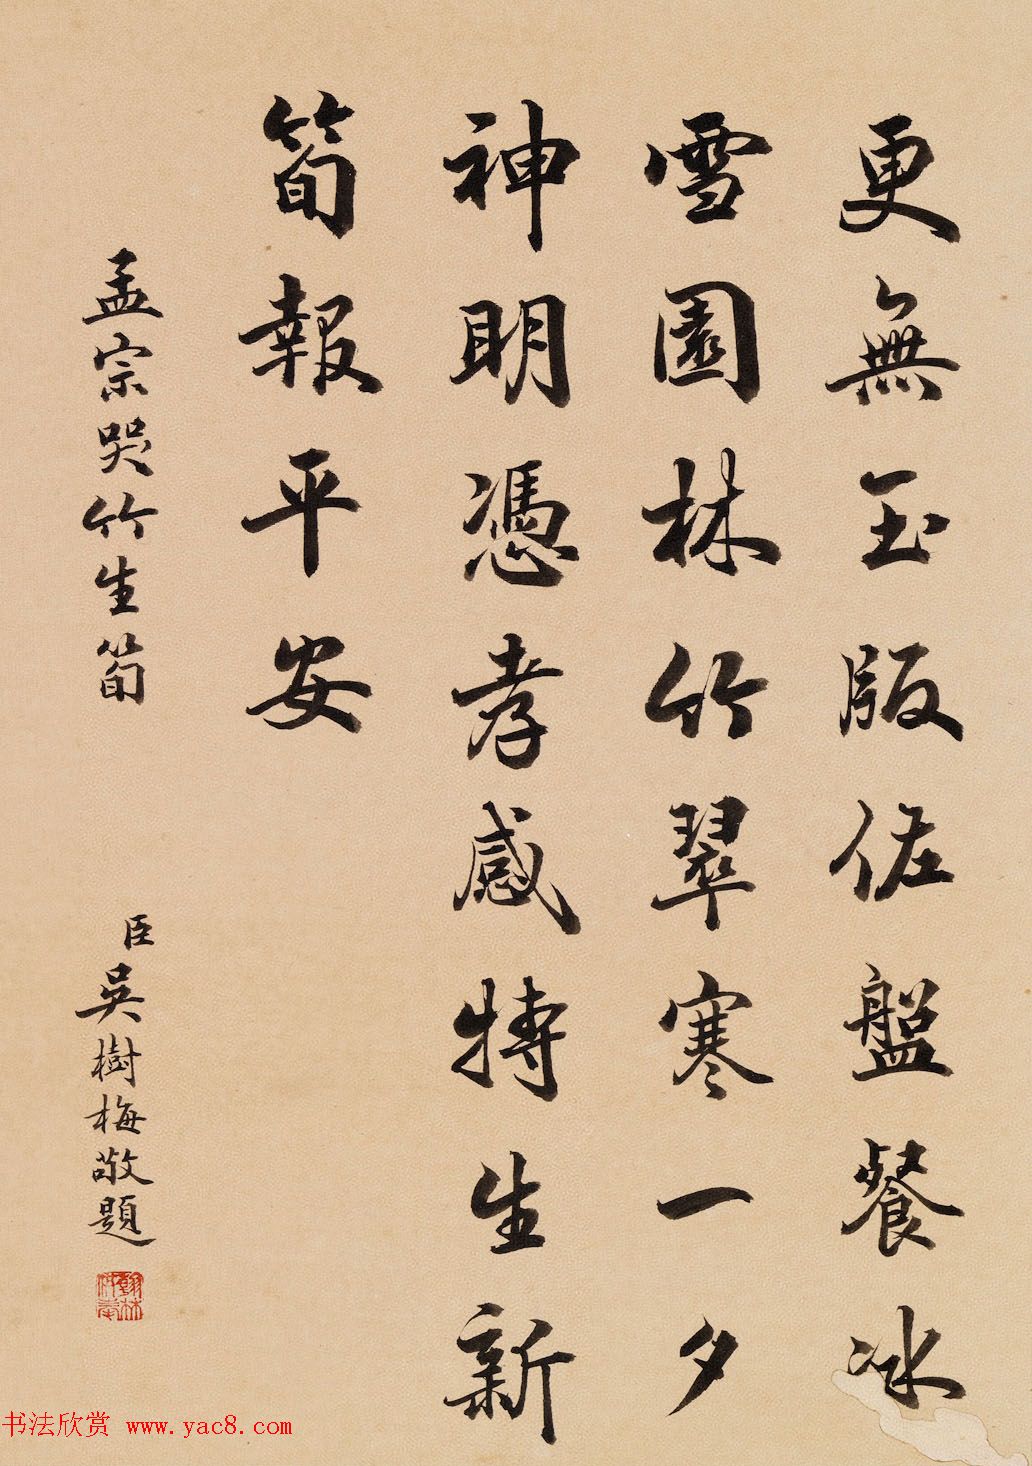 更無玉版佐盤餐冰
雪園林竹翠寒一夕
神明憑孝感特生新
筍報平安
孟宗哭竹生筍
臣吳樹梅敬題
书法欣赏 www.yac8.com